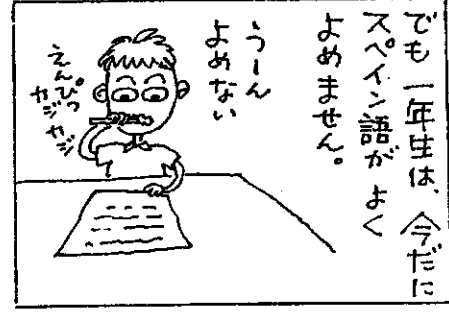 でも 一年生は、今だに
スペイン語が よく
よめません。
うーん
よめない
えんぴつ
カジ
カジ